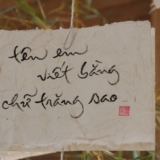 tên em
viết bằng
chữ trăng sao.